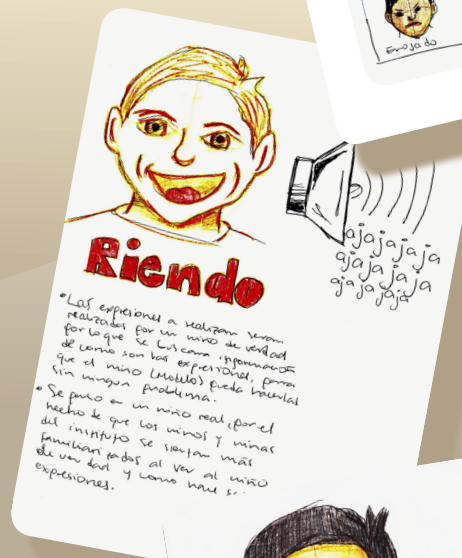 Enojado
ajajajaja
ajajaja
ajajajaja
Riendo
• Las expresiones a realizar seran
realizados por un niño de verdad
por lo que se buscara información
de como son las expresiones, para
que el niño (modelo) pueda hacerlas
sin ningun problema.
• Se penso en un niño real, por el
hecho de que los niños y niñas
del instituto se sientan más
familiarizados al ver al niño
de verdad y como hace
expresiones.